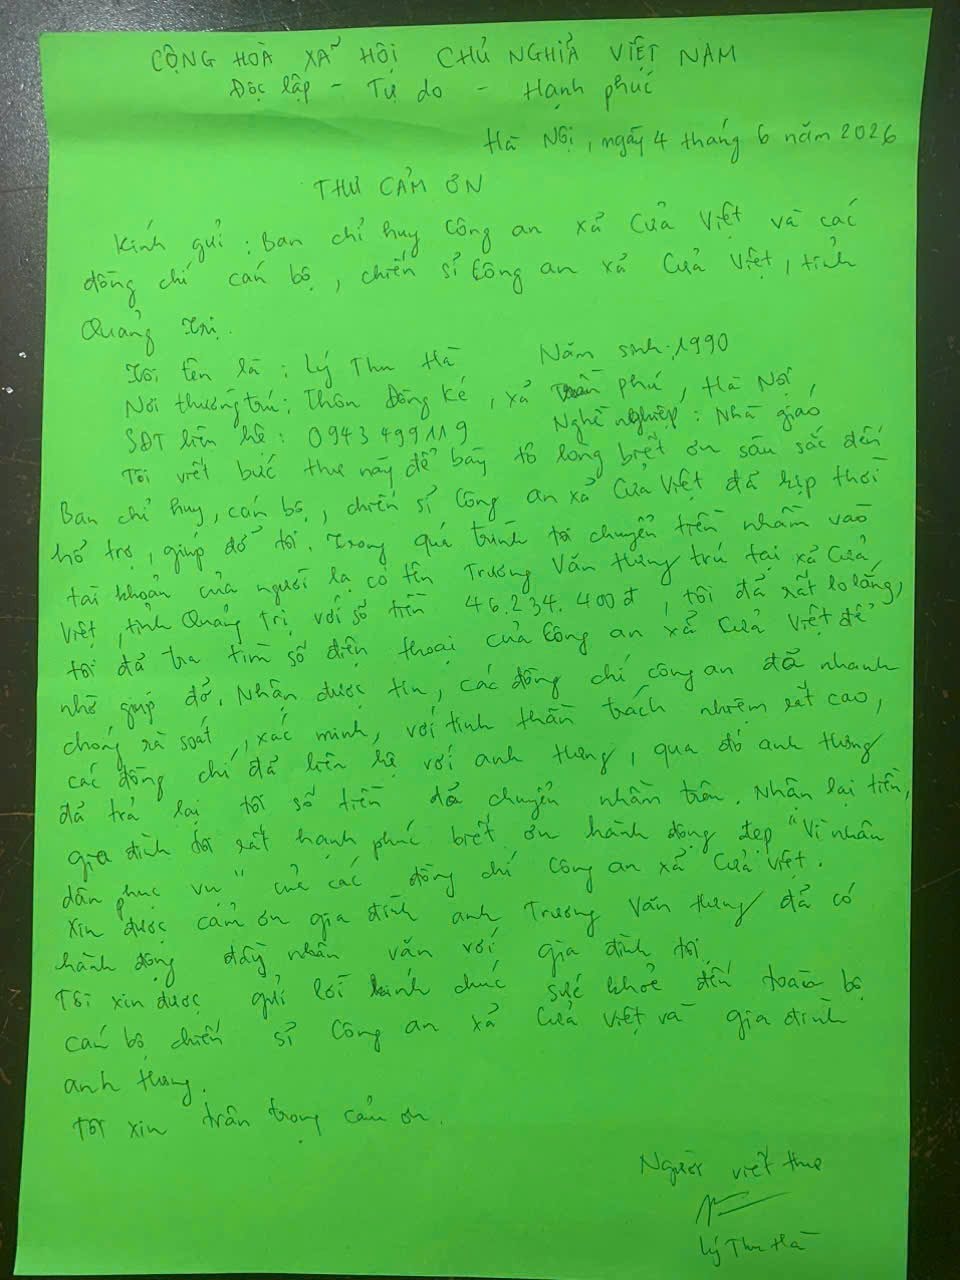 CỘNG HOÀ XẪ HỘI CHỦ NGHIẢ VIỆT NAM
Độc lập - Tự do - Hạnh phúc
Hà Nội, ngày 4 tháng 6 năm 2026
THƯ CẢM ƠN
Kính gửi : Ban chỉ huy Công an xẫ Cửa Việt và các
đồng chí cán bộ, chiến sĩ Công an xẫ Cửa Việt, tỉnh
Quảng Trị.
Tôi tên là : Lý Thu Hà Năm sinh: 1990
Nơi thường trú : Thôn Đồng Ké, xã Trần phú, Hà Nội,
SĐT liên hệ : 0943 499 119 Nghề nghiệp : Nhà giáo
Tôi viết bức thư này để bày tỏ lòng biết ơn sâu sắc đến
Ban chỉ huy, cán bộ, chiến sĩ Công an xẫ Cửa Việt đẫ kịp thời
hỗ trợ, giúp đỡ tôi. Trong quá trình tôi chuyển tiền nhầm vào
tài khoản của người lạ có tên Trương Văn Hưng trú tại xẫ Cửa
Việt, tỉnh Quảng Trị với số tiền 46.234.400đ, tôi đẫ rất lo lắng,
tôi đẫ tra tìm số điện thoại của Công an xẫ Cửa Việt để
nhờ giúp đỡ. Nhận được tin, các đồng chí công an đẫ nhanh
chóng rà soát, xác minh, với tinh thần trách nhiệm rất cao,
các đồng chí đẫ liên hệ với anh Hưng, qua đó anh Hưng
đẫ trả lại tôi số tiền đẫ chuyển nhầm trên. Nhận lại tiền,
gia đình tôi rất hạnh phúc biết ơn hành động đẹp "Vì nhân
dân phục vụ" của các đồng chí Công an xẫ Cửa Việt.
Xin được cảm ơn gia đình anh Trương Văn Hưng đẫ có
hành động đầy nhân văn với gia đình tôi.
Tôi xin được gửi lời kính chúc sức khoẻ đến toàn bộ
cán bộ chiến sĩ Công an xẫ Cửa Việt và gia đình
anh Hưng.
Tôi xin trân trọng cảm ơn.
Người viết thư
Lý Thu Hà